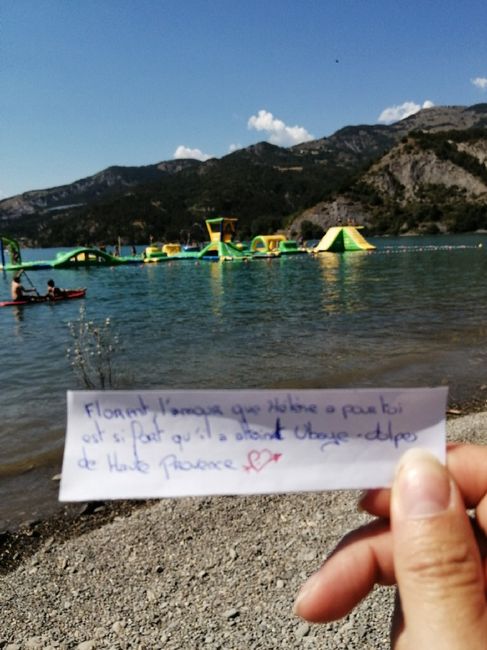 Florent, l'amour que Hélène a pour toi
est si fort qu'il a atteint Ubaye - alpes
de Haute Provence